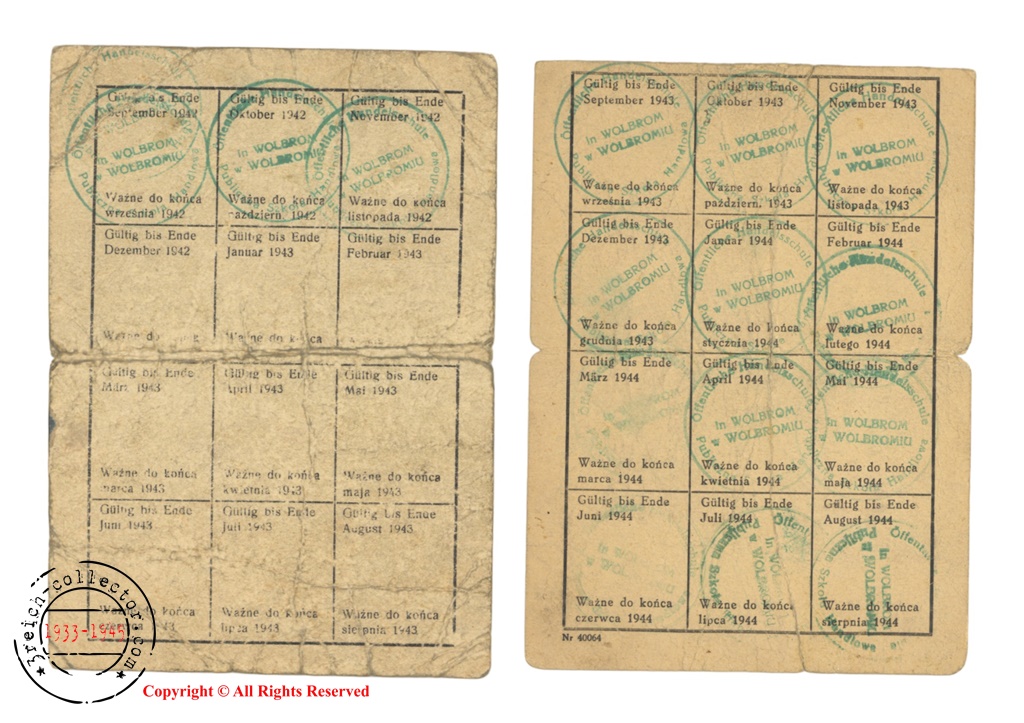 Gültig bis Ende
September 1942
Gültig bis Ende
Oktober 1942
Gültig bis Ende
November 1942
In WOLBROM
w WOLBROMIU
In WOLBROM
w WOLBROMIU
In WOLBROM
w WOLBROMIU
Ważne do końca
września 1942
Ważne do końca
październ. 1942
Ważne do końca
listopada 1942
Gültig bis Ende
Dezember 1942
Gültig bis Ende
Januar 1943
Gültig bis Ende
Februar 1943
Ważne do
Ważne do końca
Gültig bis Ende
März 1943
Gültig bis Ende
April 1943
Gültig bis Ende
Mai 1943
Ważne do końca
marca 1943
Ważne do końca
kwietnia 1943
Ważne do końca
maja 1943
Gültig bis Ende
Juni 1943
Gültig bis Ende
Juli 1943
Gültig bis Ende
August 1943
Ważne do końca
1943
Ważne do końca
lipca 1943
Ważne do końca
sierpnia 1943
3reich-collectors.com
1933-1945
Copyright © All Rights Reserved
Gültig bis Ende
September 1943
Gültig bis Ende
Oktober 1943
Gültig bis Ende
November 1943
In WOLBROM
w WOLBROMIU
In WOLBROM
w WOLBROMIU
In WOLBROM
w WOLBROMIU
Ważne do końca
września 1943
Ważne do końca
październ. 1943
Ważne do końca
listopada 1943
Gültig bis Ende
Dezember 1943
Gültig bis Ende
Januar 1944
Gültig bis Ende
Februar 1944
In WOLBROM
w WOLBROMIU
In WOLBROM
w WOLBROMIU
In WOLBROM
w WOLBROMIU
Ważne do końca
grudnia 1943
Ważne do końca
stycznia 1944
Ważne do końca
lutego 1944
Gültig bis Ende
März 1944
Gültig bis Ende
April 1944
Gültig bis Ende
Mai 1944
In WOLBROM
w WOLBROMIU
In WOLBROM
w WOLBROMIU
Ważne do końca
marca 1944
Ważne do końca
kwietnia 1944
Ważne do końca
maja 1944
Gültig bis Ende
Juni 1944
Gültig bis Ende
Juli 1944
Gültig bis Ende
August 1944
In WOLBROM
w WOLBROMIU
Ważne do końca
czerwca 1944
Ważne do końca
lipca 1944
Ważne do końca
sierpnia 1944
Nr 40064